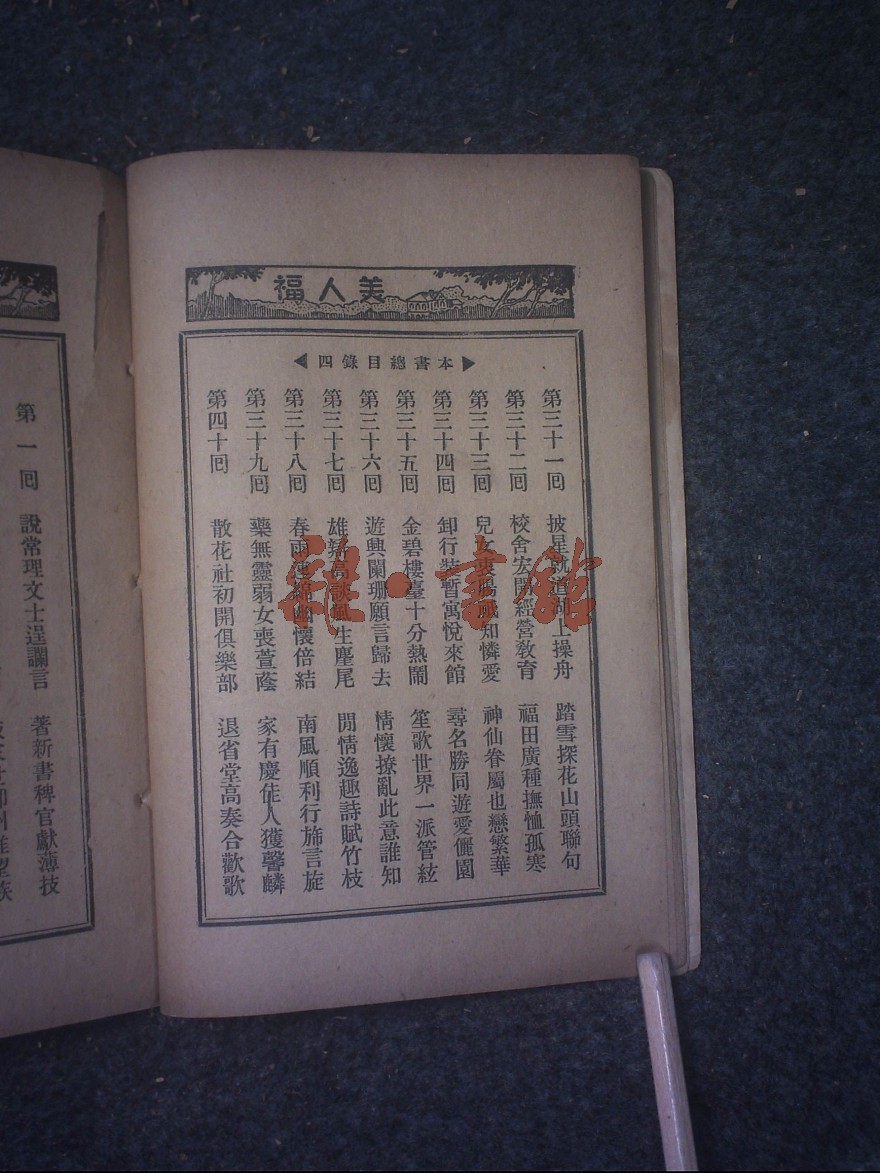 美人福
本書總目錄四
第三十一回 披星就道河上操舟 踏雪探花山頭聯句
第三十二回 校舍宏開經營教育 福田廣種撫恤孤寒
第三十三回 兒女衷腸咸知憐愛 神仙眷屬也戀繁華
第三十四回 卸行裝暫寓悅來館 尋名勝同遊愛儷園
第三十五回 金碧樓臺十分熱鬧 笙歌世界一派管絃
第三十六回 遊興闌珊願言歸去 情懷撩亂此意誰知
第三十七回 雄辯高談風生麈尾 閒情逸趣詩賦竹枝
第三十八回 春雨連綿幽懷倍結 南風順利行旆言旋
第三十九回 藥無靈弱女喪萱蔭 家有慶佳人獲馨麟
第四十回 散花社初開俱樂部 退省堂高奏合歡歌
雜·書館
第一回 說常理文士逞讕言 著新書稗官獻薄技